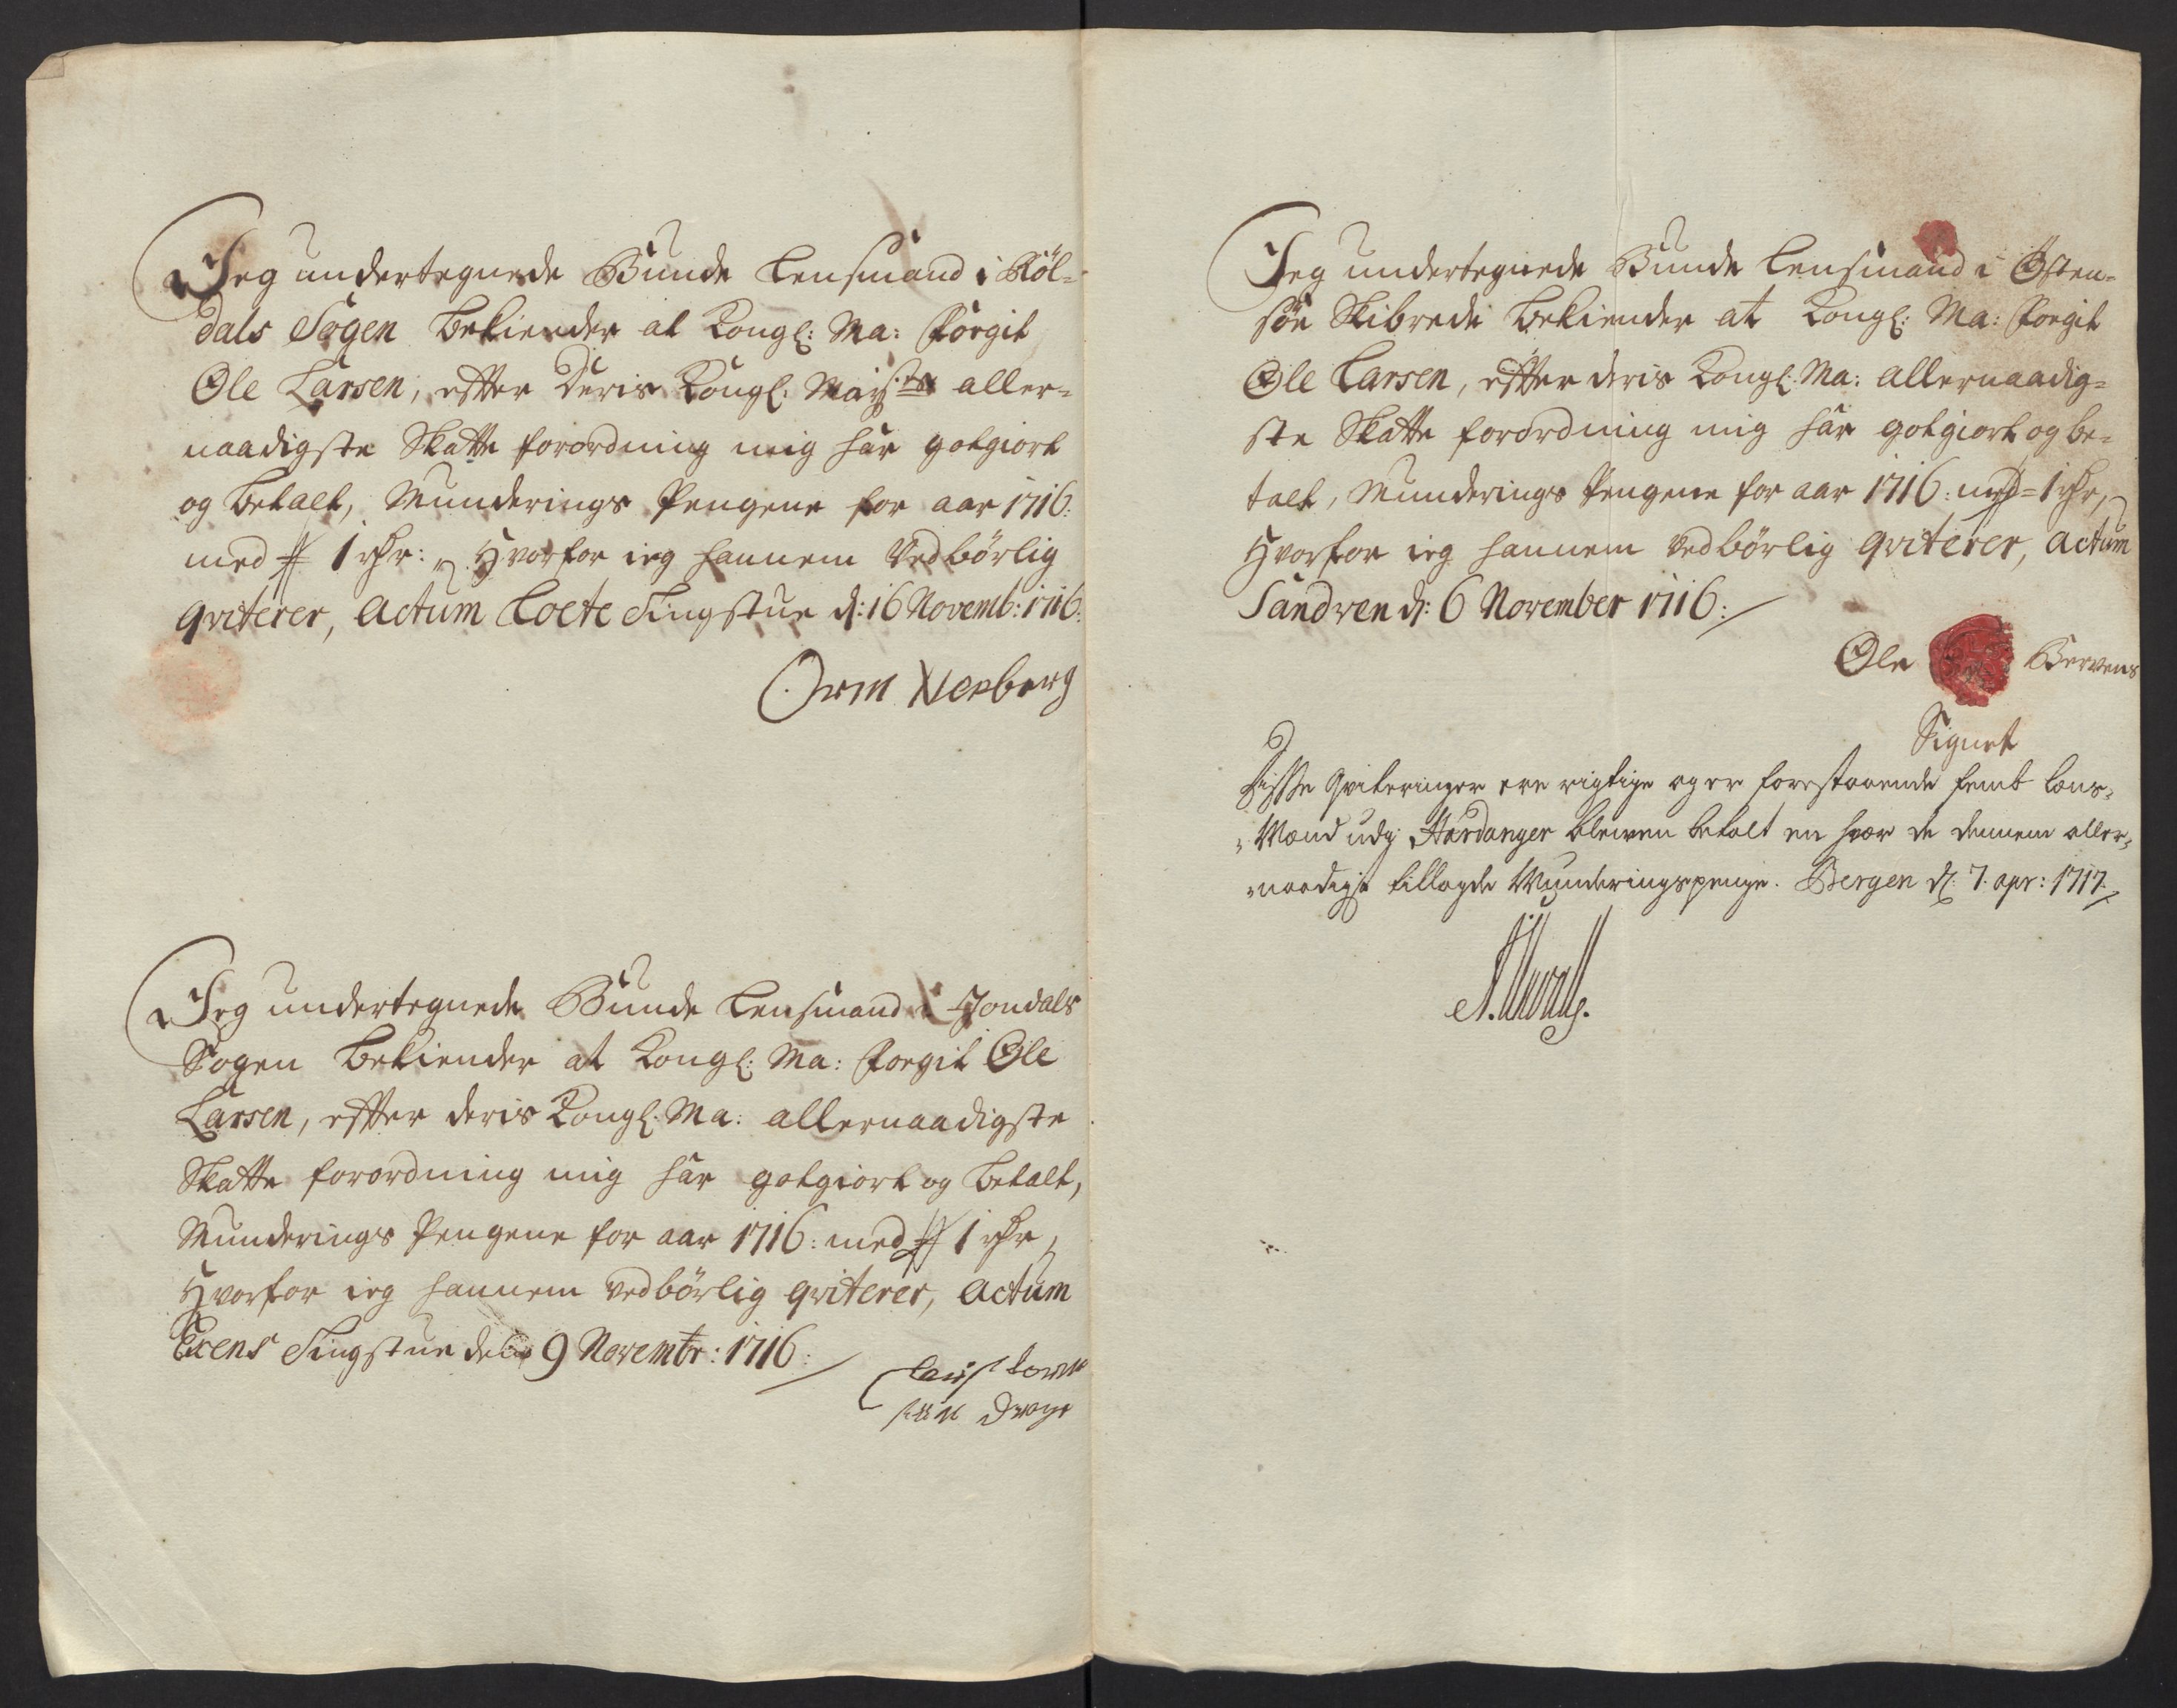 Jeg undertegnede Bunde Lensmand i Röl-
dals Sogen bekiender at Kongl: Ma: Forgit
Ole Larsen, efter Deris Kongl: May:ts aller-
naadigste Skatte forordning mig har gotgiort
og betalt, Munderings Pengene for aar 1716:
med # 1 rdr: Hvorfor ieg hannem Vedbörlig
qviterer, Actum Loete Tingstue d: 16 Novemb: 1716.
Orm
Jeg undertegnede Bunde Lensmand i Jondals
Sogen bekiender at Kongl: Ma: Forgit Ole
Larsen, efter deris Kongl: Ma: allernaadigste
Skatte forordning mig har gotgiort og betalt,
Munderings Pengene for aar 1716: med # 1 rdr,
Hvorfor ieg hannem vedbörlig qviterer, Actum
Tingstue den 9 Novembr: 1716:
Jeg undertegnede Bunde Lensmand i Østen-
söe Skibrede bekiender at Kongl: Ma: Forgit
Ole Larsen, efter deris Kongl: Ma: allernaadig-
ste Skatte forordning mig har gotgiort og be-
talt, Munderings Pengene for aar 1716: med = 1 rdr,
Hvorfor ieg hannem vedbörlig qviterer, Actum
Sandven d: 6 November 1716:
Ole Bervens
Signet
Disse Qviteringer ere rigtige og er forestaaende femb Lens-
Mænd udj Hardanger bleven betalt en hver de dennem aller-
naadigst tillagde Munderingspenge. Bergen d: 7. apr: 1717.